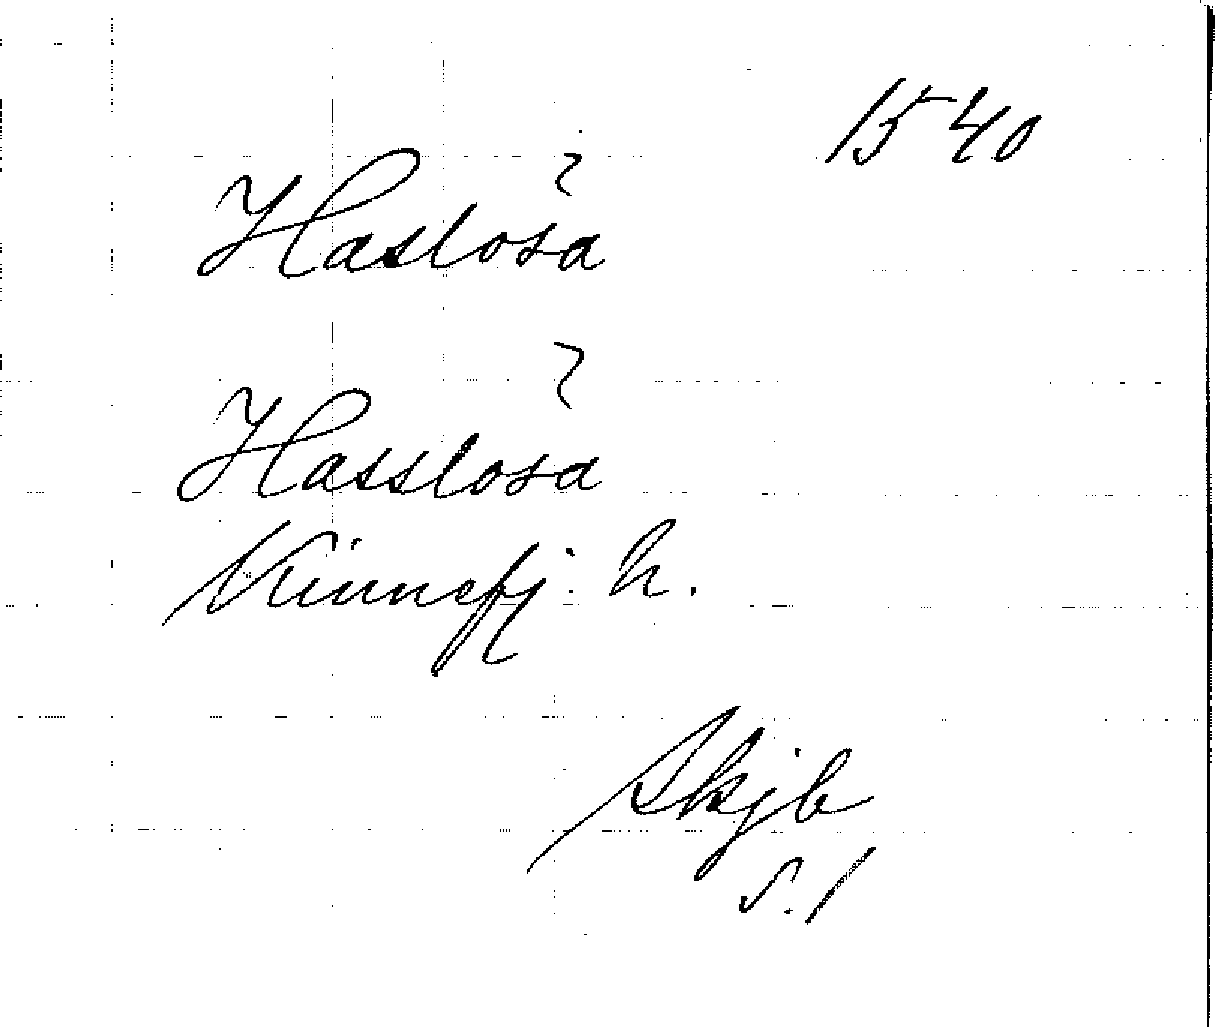 1540
Haslosa
Hasslosa
Kinnefj. h.
Skjb
s. 1